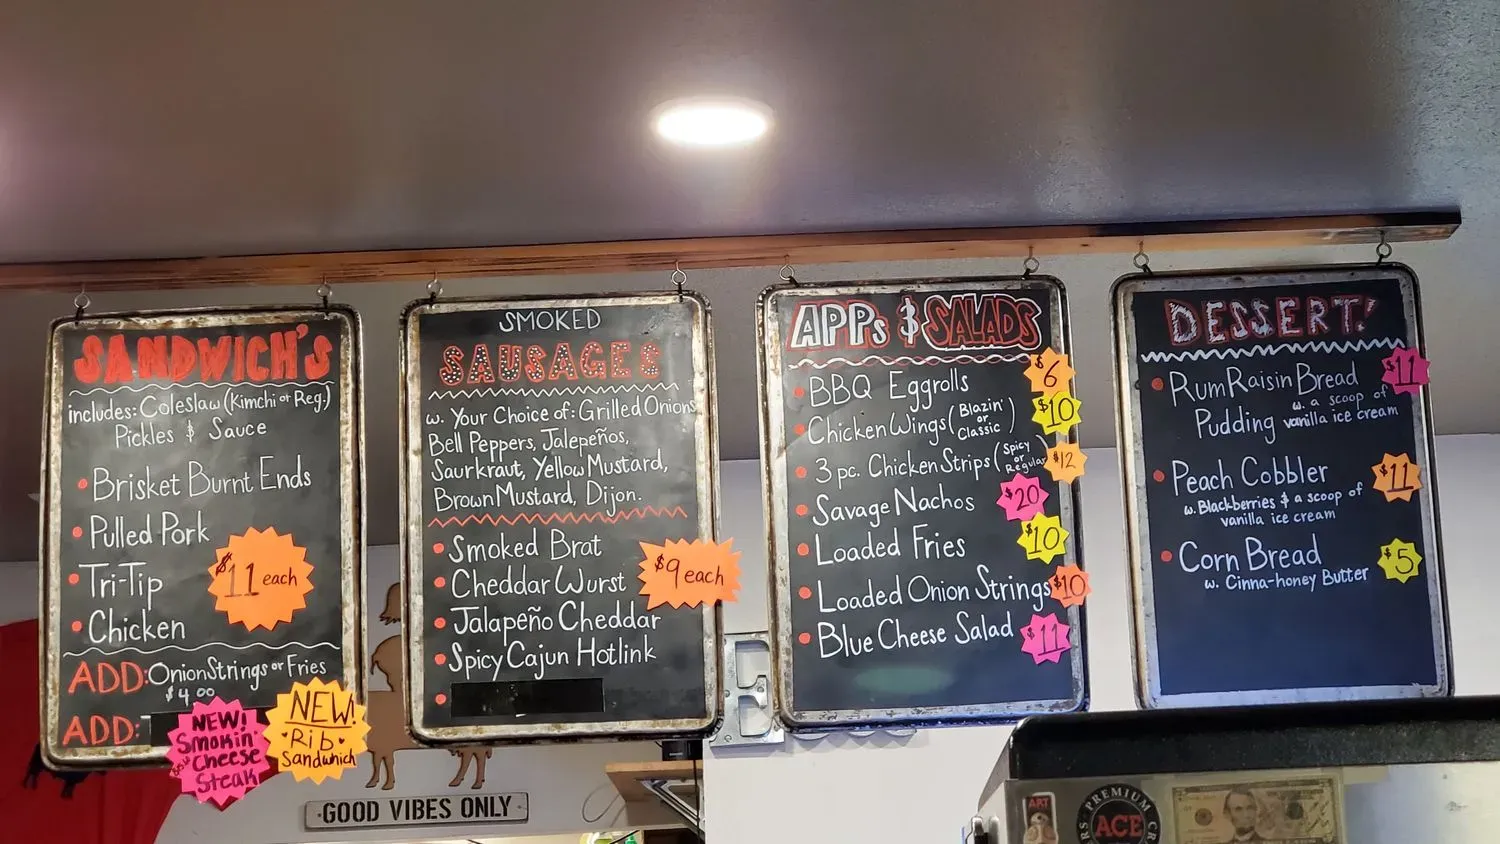 SANDWICH'S
includes: Coleslaw (Kimchi or Reg.)
Pickles & Sauce
Brisket Burnt Ends
Pulled Pork
Tri-Tip
Chicken
$11 each
ADD: Onion Strings or Fries
$4.00
ADD:
NEW!
Smokin'
Cheese
Steak
NEW!
Rib
Sandwich
SMOKED
SAUSAGES
w. Your Choice of: Grilled Onions
Bell Peppers, Jalepeños,
Saurkraut, Yellow Mustard,
Brown Mustard, Dijon.
Smoked Brat
Cheddar Wurst
Jalapeño Cheddar
Spicy Cajun Hotlink
$9 each
APPs & SALADS
BBQ Eggrolls $6
Chicken Wings (Blazin' or Classic) $10
3 pc. Chicken Strips (Spicy or Regular) $12
Savage Nachos $20
Loaded Fries $10
Loaded Onion Strings $10
Blue Cheese Salad $11
DESSERT!
Rum Raisin Bread $11
Pudding w. a scoop of
vanilla ice cream
Peach Cobbler $11
w. Blackberries & a scoop of
vanilla ice cream
Corn Bread $5
w. Cinna-honey Butter
GOOD VIBES ONLY
E
ART
PREMIUM
ACE